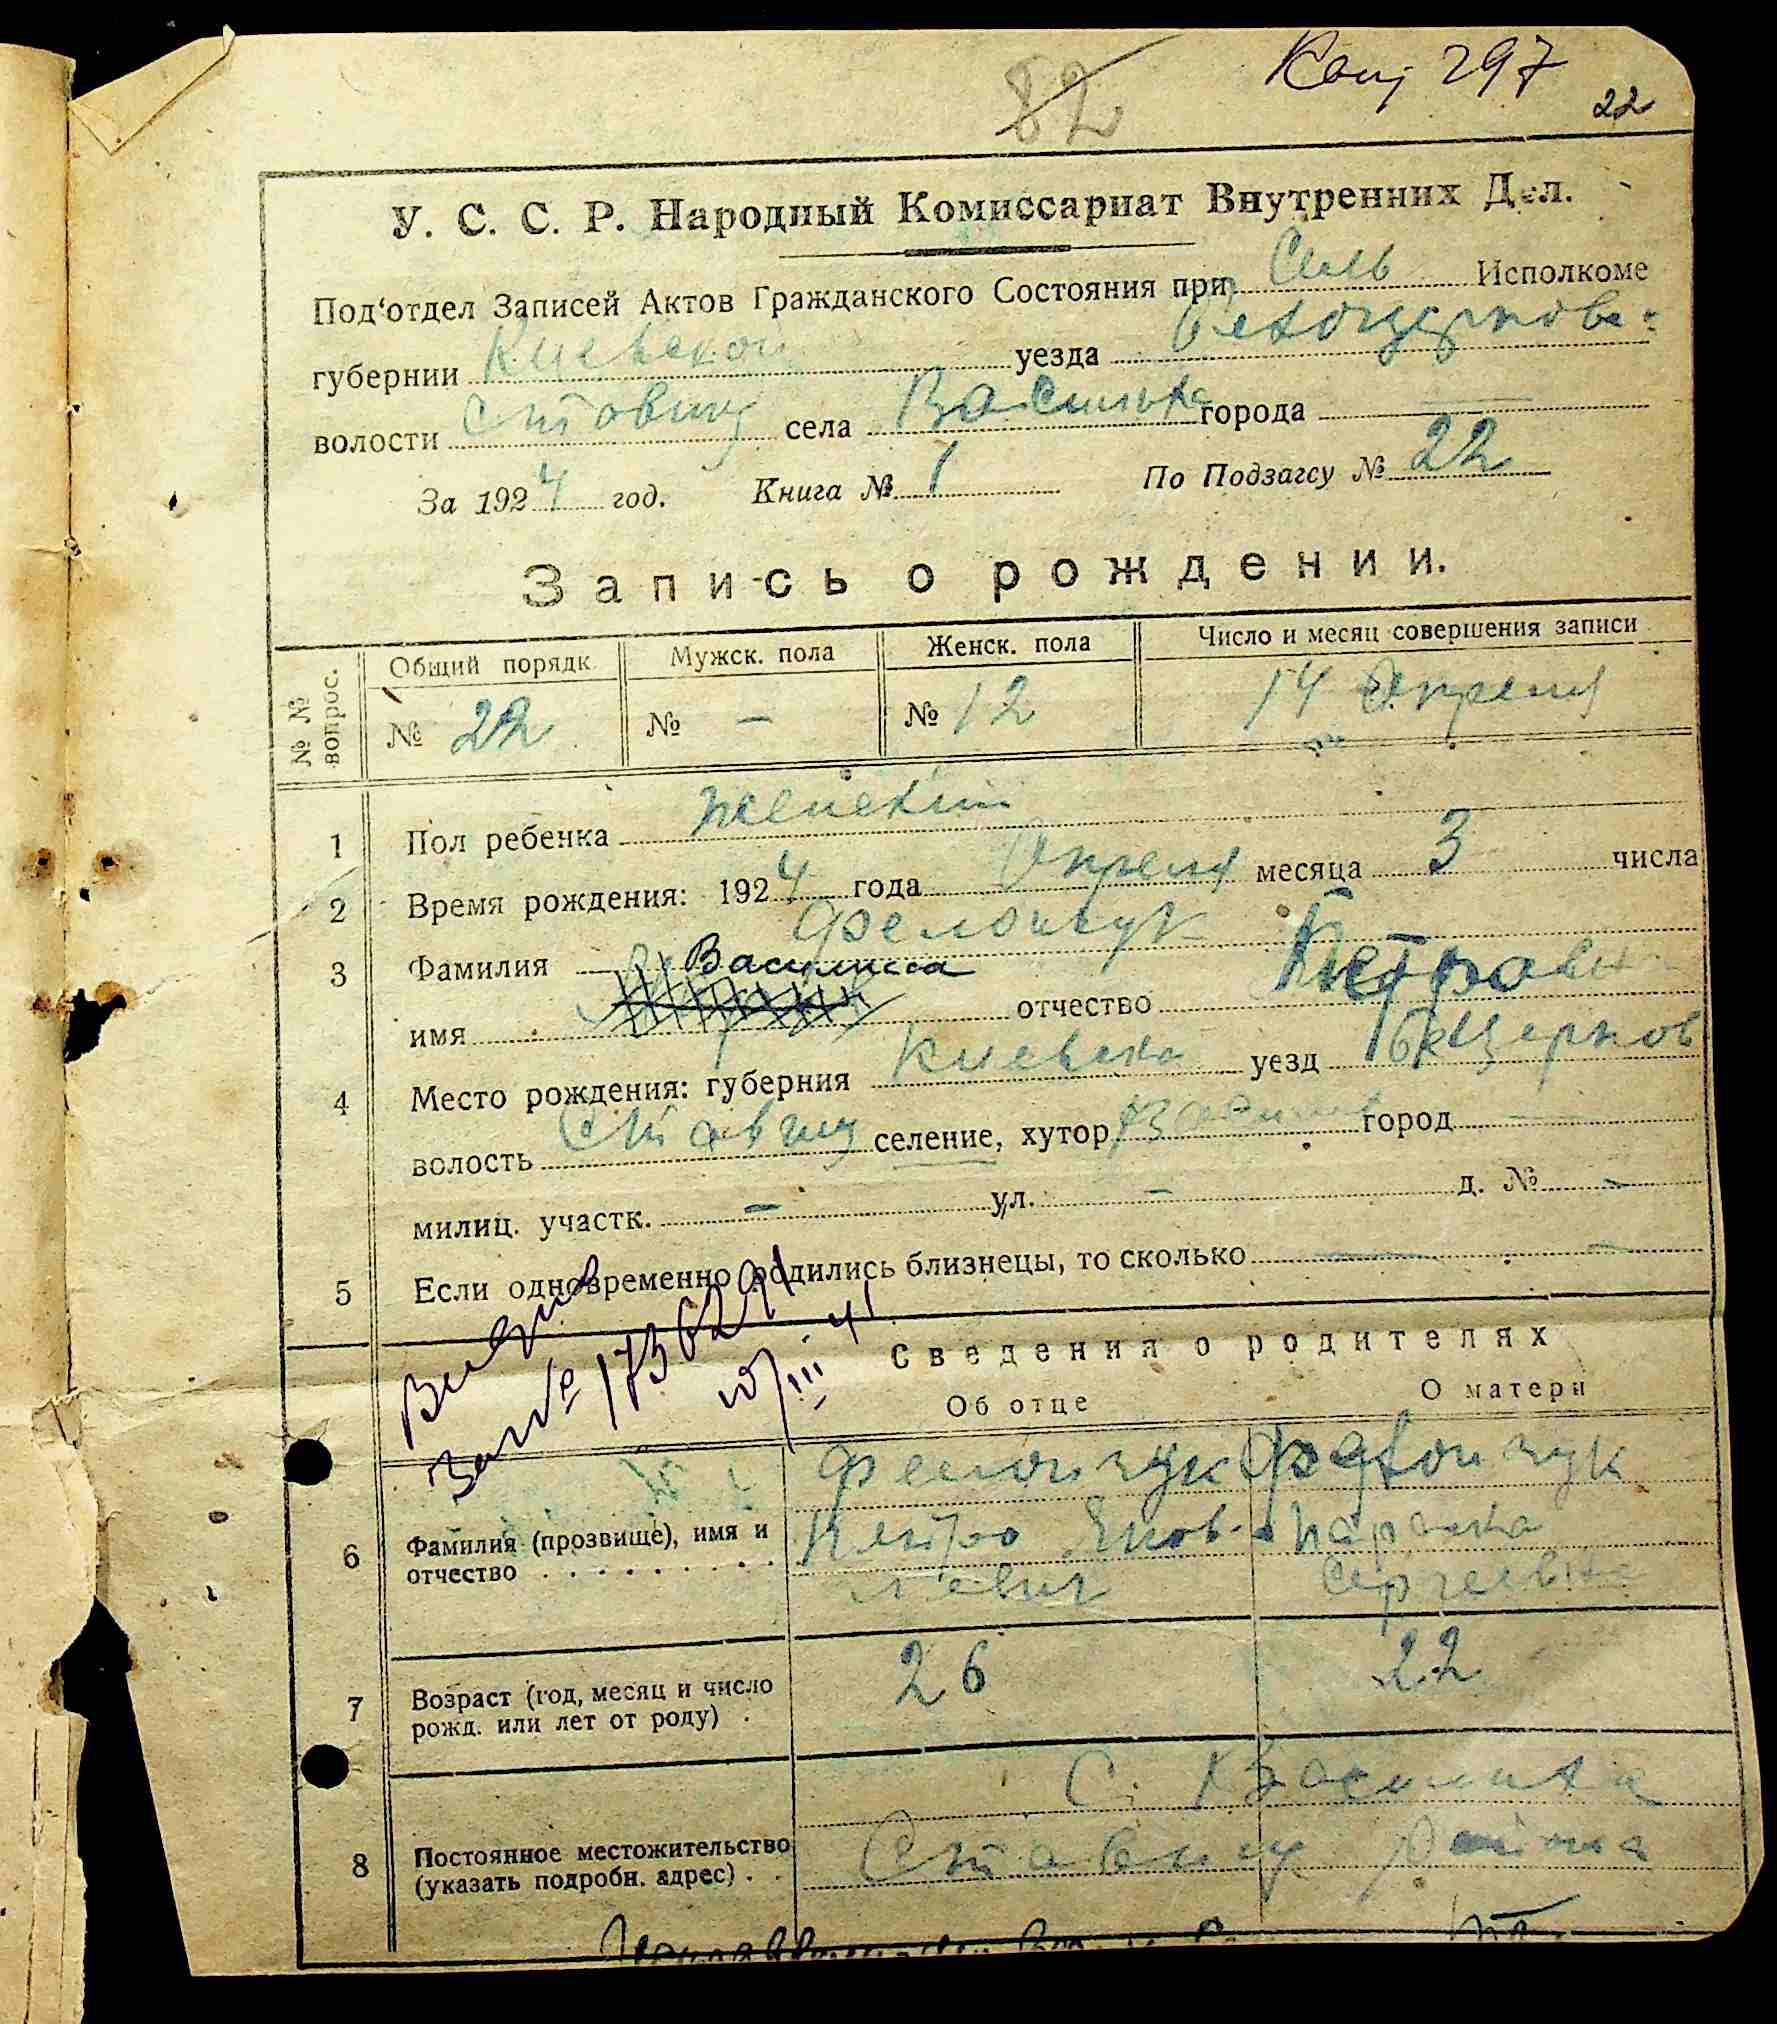 82
22
У. С. С. Р. Народный Комиссариат Внутренних Дел.
Под'отдел Записей Актов Гражданского Состояния при Исполкоме
губернии Киевской уезда Белоцерковс-
волости Ставищ села Василиха города —
За 1924 год. Книга № 1 По Подзагсу № 22
Запись о рождении.
№ № вопрос. Общий порядк Мужск. пола Женск. пола Число и месяц совершения записи
№ 22 № — № 12 14 Апреля
1 Пол ребенка женский
2 Время рождения: 1924 года Апреля месяца 3 числа
3 Фамилия
Василиса
имя отчество Петровн
4 Место рождения: губерния Киевска уезд Б Церков
волость Ставищ селение, хутор город —
милиц. участк. — ул. — д. № —
5 Если одновременно родились близнецы, то сколько — —
№ 173629
Сведения о родителях
Об отце О матери
6 Фамилия (прозвище), имя и
отчество
Петро Параска
Сергеевна
7 Возраст (год, месяц и число
рожд. или лет от роду) .
26 22
С. Василиха
8 Постоянное местожительство
(указать подробн. адрес) . .
Ставищ района